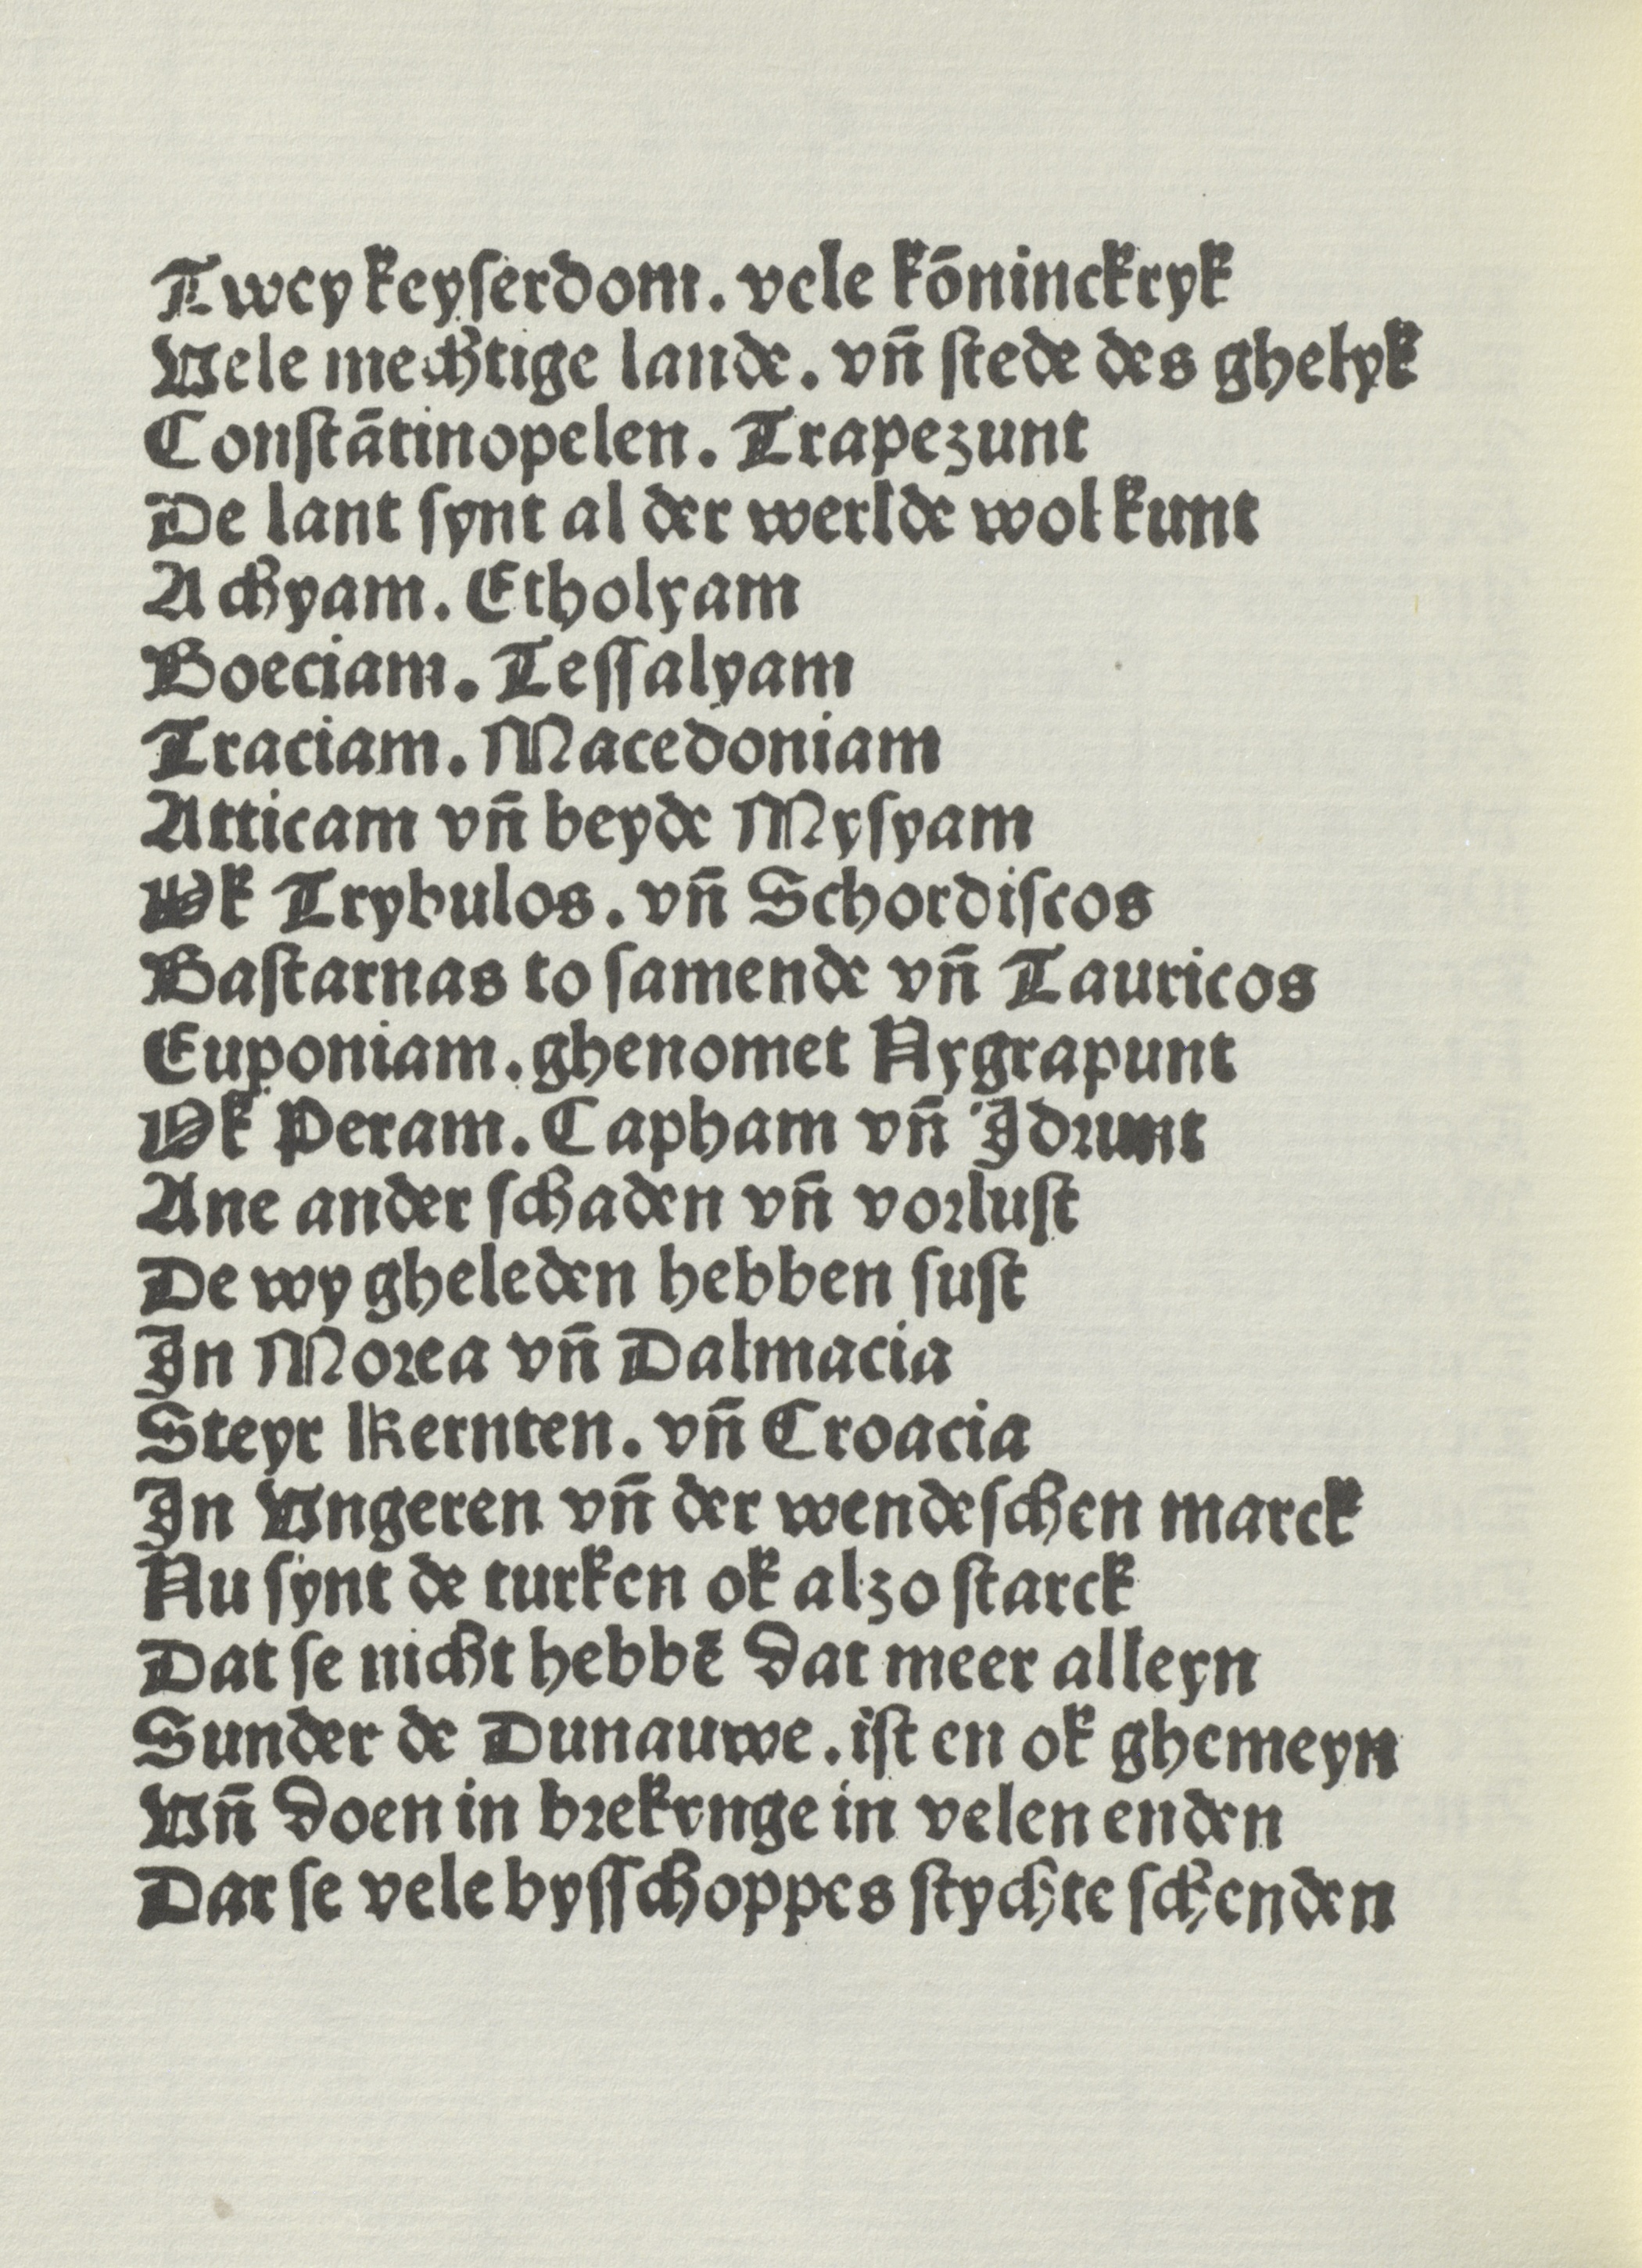 Twey keyserdom. vele kōninckryk
Vele mechtige lande. vñ stede des ghelyk
Constātinopelen. Trapezunt
De lant synt al der werlde wol kunt
Achyam. Etholyam
Boeciam. Tessalyam
Traciam. Macedoniam
Atticam vñ beyde Mysyam
Ok Trybulos. vñ Schordiscos
Bastarnas to samende vñ Tauricos
Euponiam. ghenomet Nygrapunt
Ok Peram. Capham vñ Idrunt
Ane ander schaden vñ vorlust
De wy gheleden hebben sust
In Morea vñ Dalmacia
Steyr Kernten. vñ Croacia
In Vngeren vñ der wendeschen marck
Nu synt de turken ok alzo starck
Dat se nicht hebbē dat meer alleyn
Sunder de Dunauwe. ist en ok ghemeyn
Vñ doen in brekynge in velen enden
Dar se vele bysschoppes stychte schenden